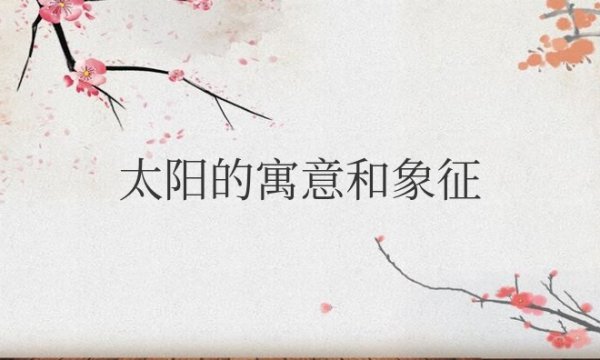 太阳的寓意和象征